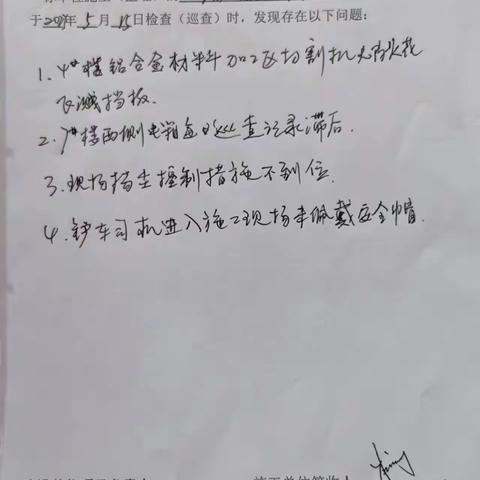 于 年5月15日检查（巡查）时，发现存在以下问题：
1. 4#楼铝合金材料加工区切割机无防火花
飞溅挡板.
2. 7#楼西侧电箱每日巡查记录滞后.
3. 现场扬尘控制措施不到位.
4. 铲车司机进入施工现场未佩戴安全帽.